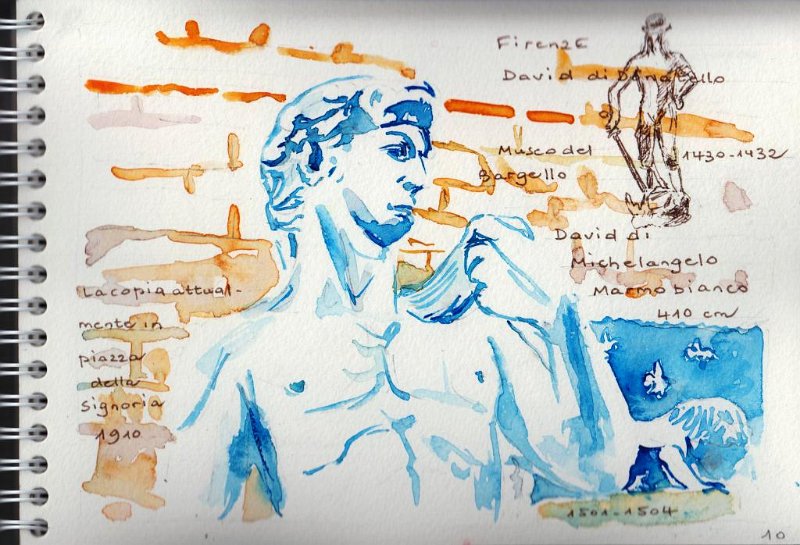 Firenze
David di Donatello
Museo del
Bargello
1430-1432
David di
Michelangelo
Marmo bianco
410 cm
La copia attual-
mente in
piazza
della
Signoria
1910
1501-1504
10